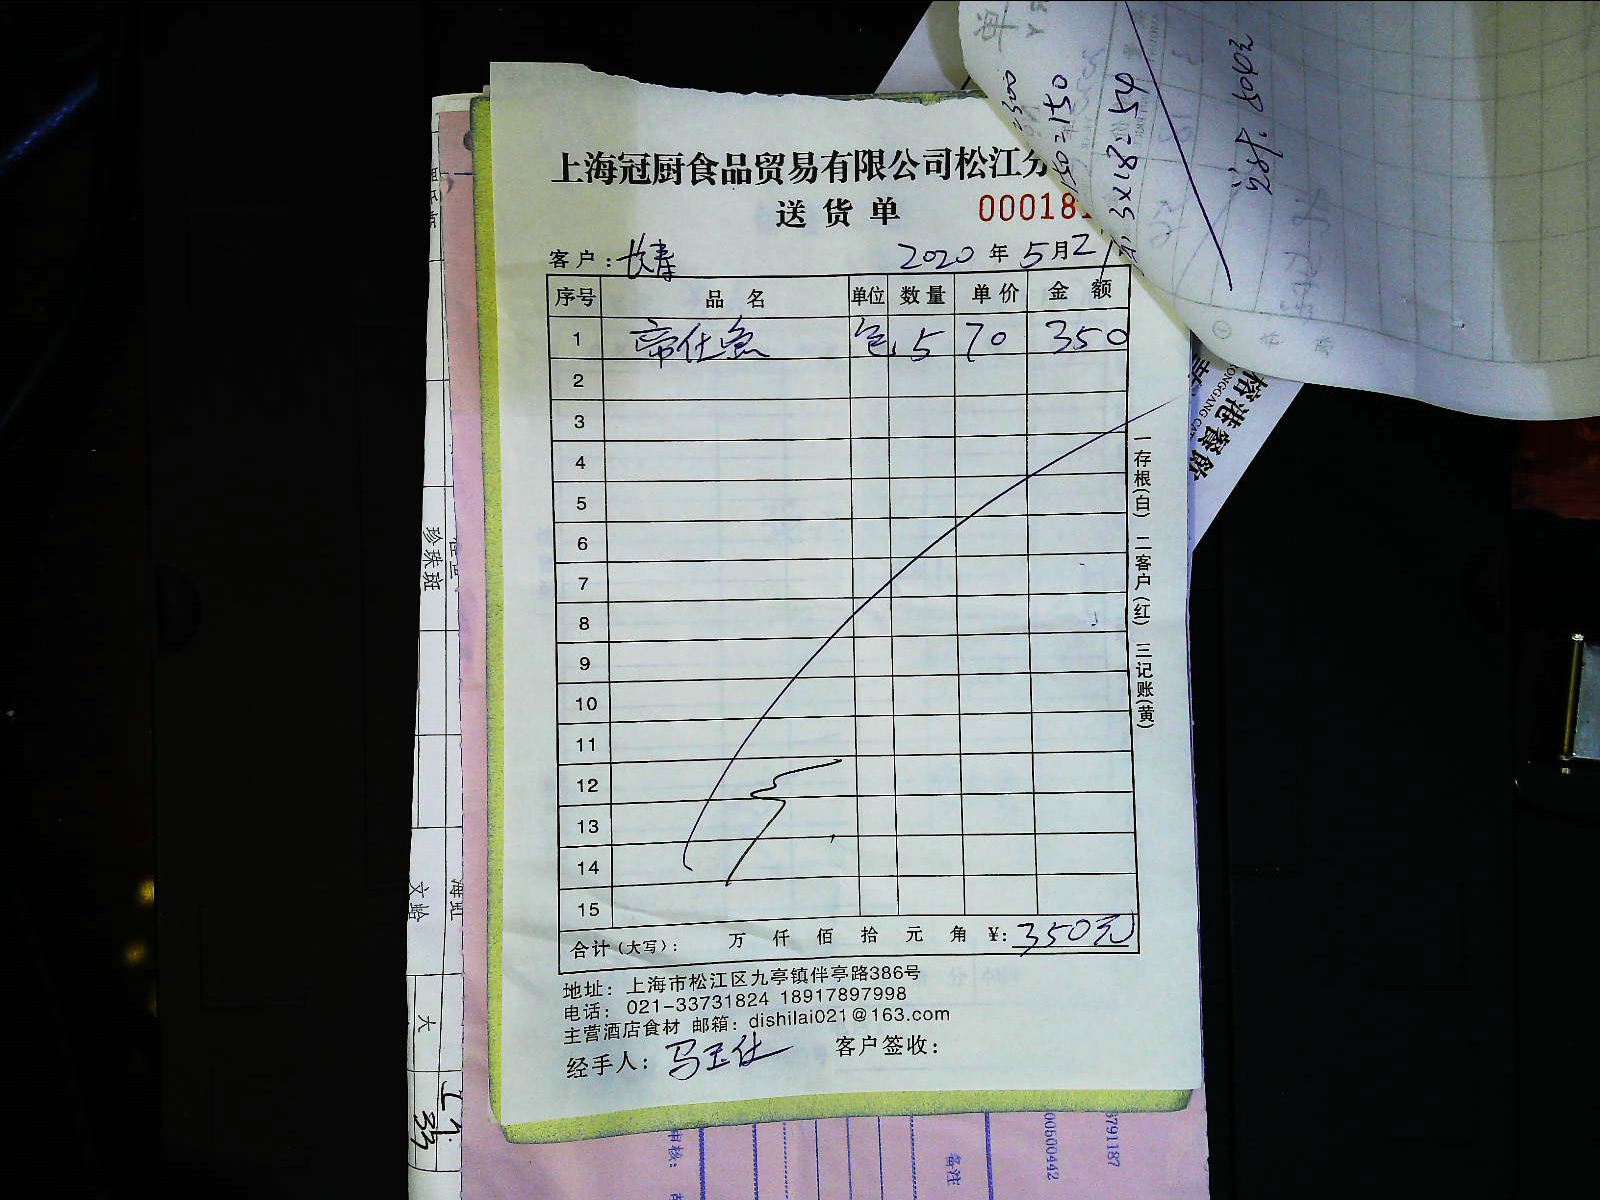 上海冠厨食品贸易有限公司松江分
送货单 00018
客户: 长寿 2020年5月2
序号 品名 单位 数量 单价 金额
1 帝仕鱼 包 5 70 350
2
3
4
5
6
7
8
9
10
11
12
13
14
15
合计(大写): 万 仟 佰 拾 元 角 ¥: 350元
地址: 上海市松江区九亭镇伴亭路386号
电话: 021-33731824 18917897998
主营酒店食材 邮箱: dishilai021@163.com
经手人: 马玉仕 客户签收:
一存根(白) 二客户(红) 三记账(黄)
=150
3×18=54
504元
榕港餐飲
珍珠斑
文蛤
大
33
备注
00500442
3791187